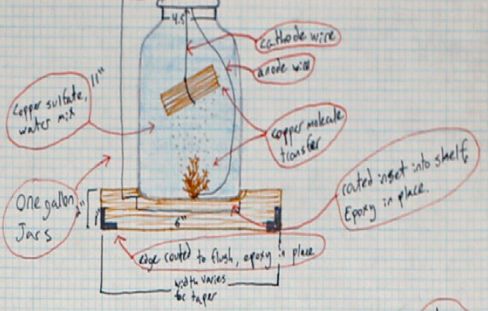 4.5"
cathode wire
anode wire
11"
Copper sulfate,
water mix
copper molecule
transfer
routed inset into shelf,
Epoxy in place.
One gallon
Jars
"
6"
edge routed to flush, epoxy in place
width varies
for taper